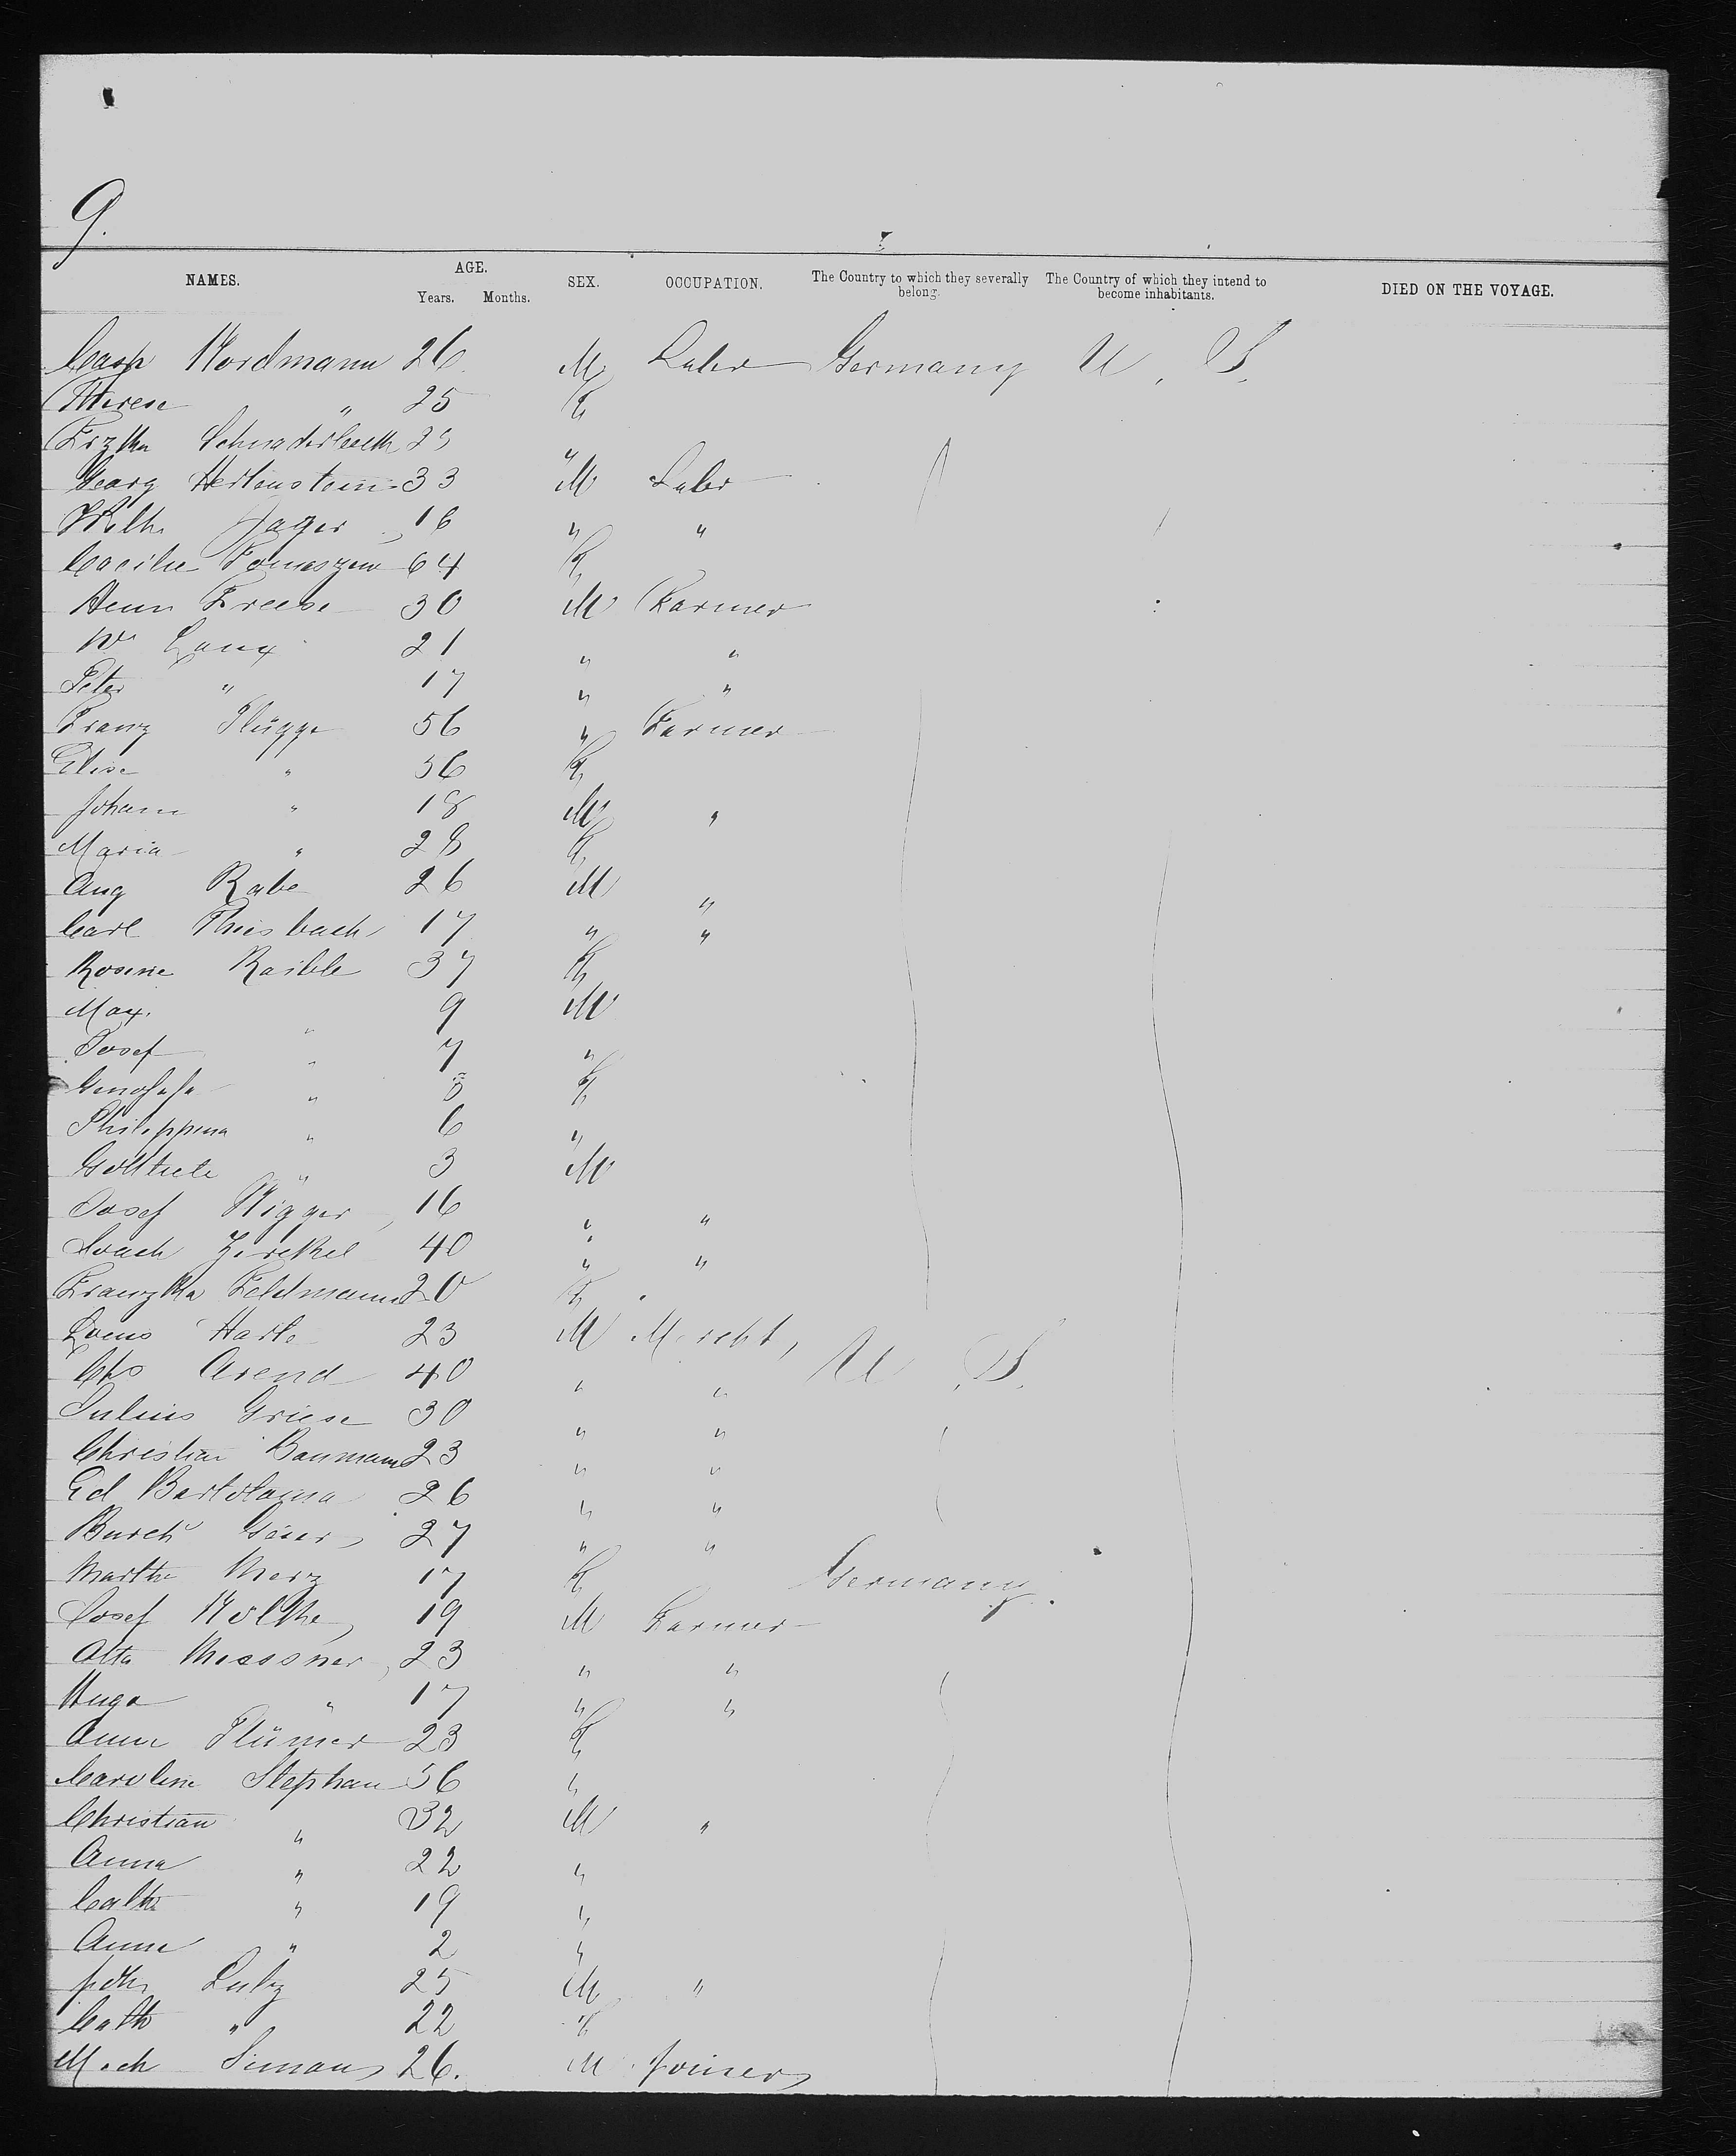 9.
NAMES. AGE. SEX. OCCUPATION. The Country to which they severally belong. The Country of which they intend to become inhabitants. DIED ON THE VOYAGE.
Years. Months.
Casp Nordmann 26. M Labr Germany U. S.
Therese " 25 F
Frzka 25 "
Georg Hertenstein 33 M Labr
Wilh Jager 16 " "
Caecilie 64 F
Henn Freese 30 M Farmer
W Lang 21 " "
Peter " 17 " "
Franz Flügge 56 " Farmer
Elise " 56 F
Johann " 18 M "
Maria " 28 F
Aug Rabe 26 M "
Carl Thiesbach 17 " "
Rosine Raible 37 F
Max. " 9 M
Josef " 7 "
Genofefa " 8 F
Philippina " 6 "
" 3 M
Josef Rigger 16 " "
Zirckel 40 " "
Franzka Feldmann 20 F
Louis Harle 23 M Mercht, U. S.
Chs Arend 40 " "
Julius Griese 30 " "
Christian Baumann 23 " "
Ed Bartolama 26 " "
27 " "
Martha Merz 17 F Germany
Josef Nolthe 19 M Farmer
Otto Messner, 23 " "
Hugo " 17 " "
Anna Plümer 23 F
Caroline Stephan 56 "
Christian " 32 M "
Anna " 22 "
Cath " 19 "
Anna " 2 "
Joh Lutz 25 M "
Cath " 22 F
Mich Simon 26. M Joiner